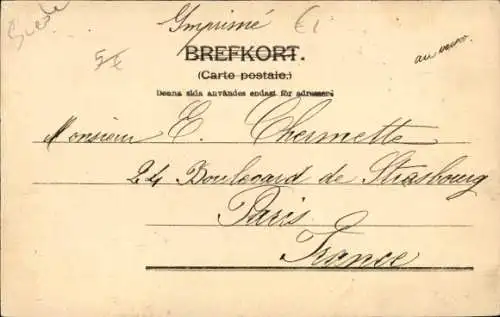 Suède
Imprimé
€1
5€
BREFKORT.
(Carte postale.)
au verso.
Denna sida användes endast för adressen.
Monsieur E. Chermette
24 Boulevard de Strasbourg
Paris
France